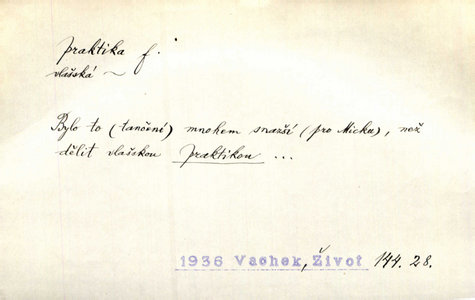 praktika f.
vlašská ~
Bylo to (tančení) mnohem snazší (pro Micku), než
dělit vlašskou praktikou ...
1936 Vachek, Život 144. 28.